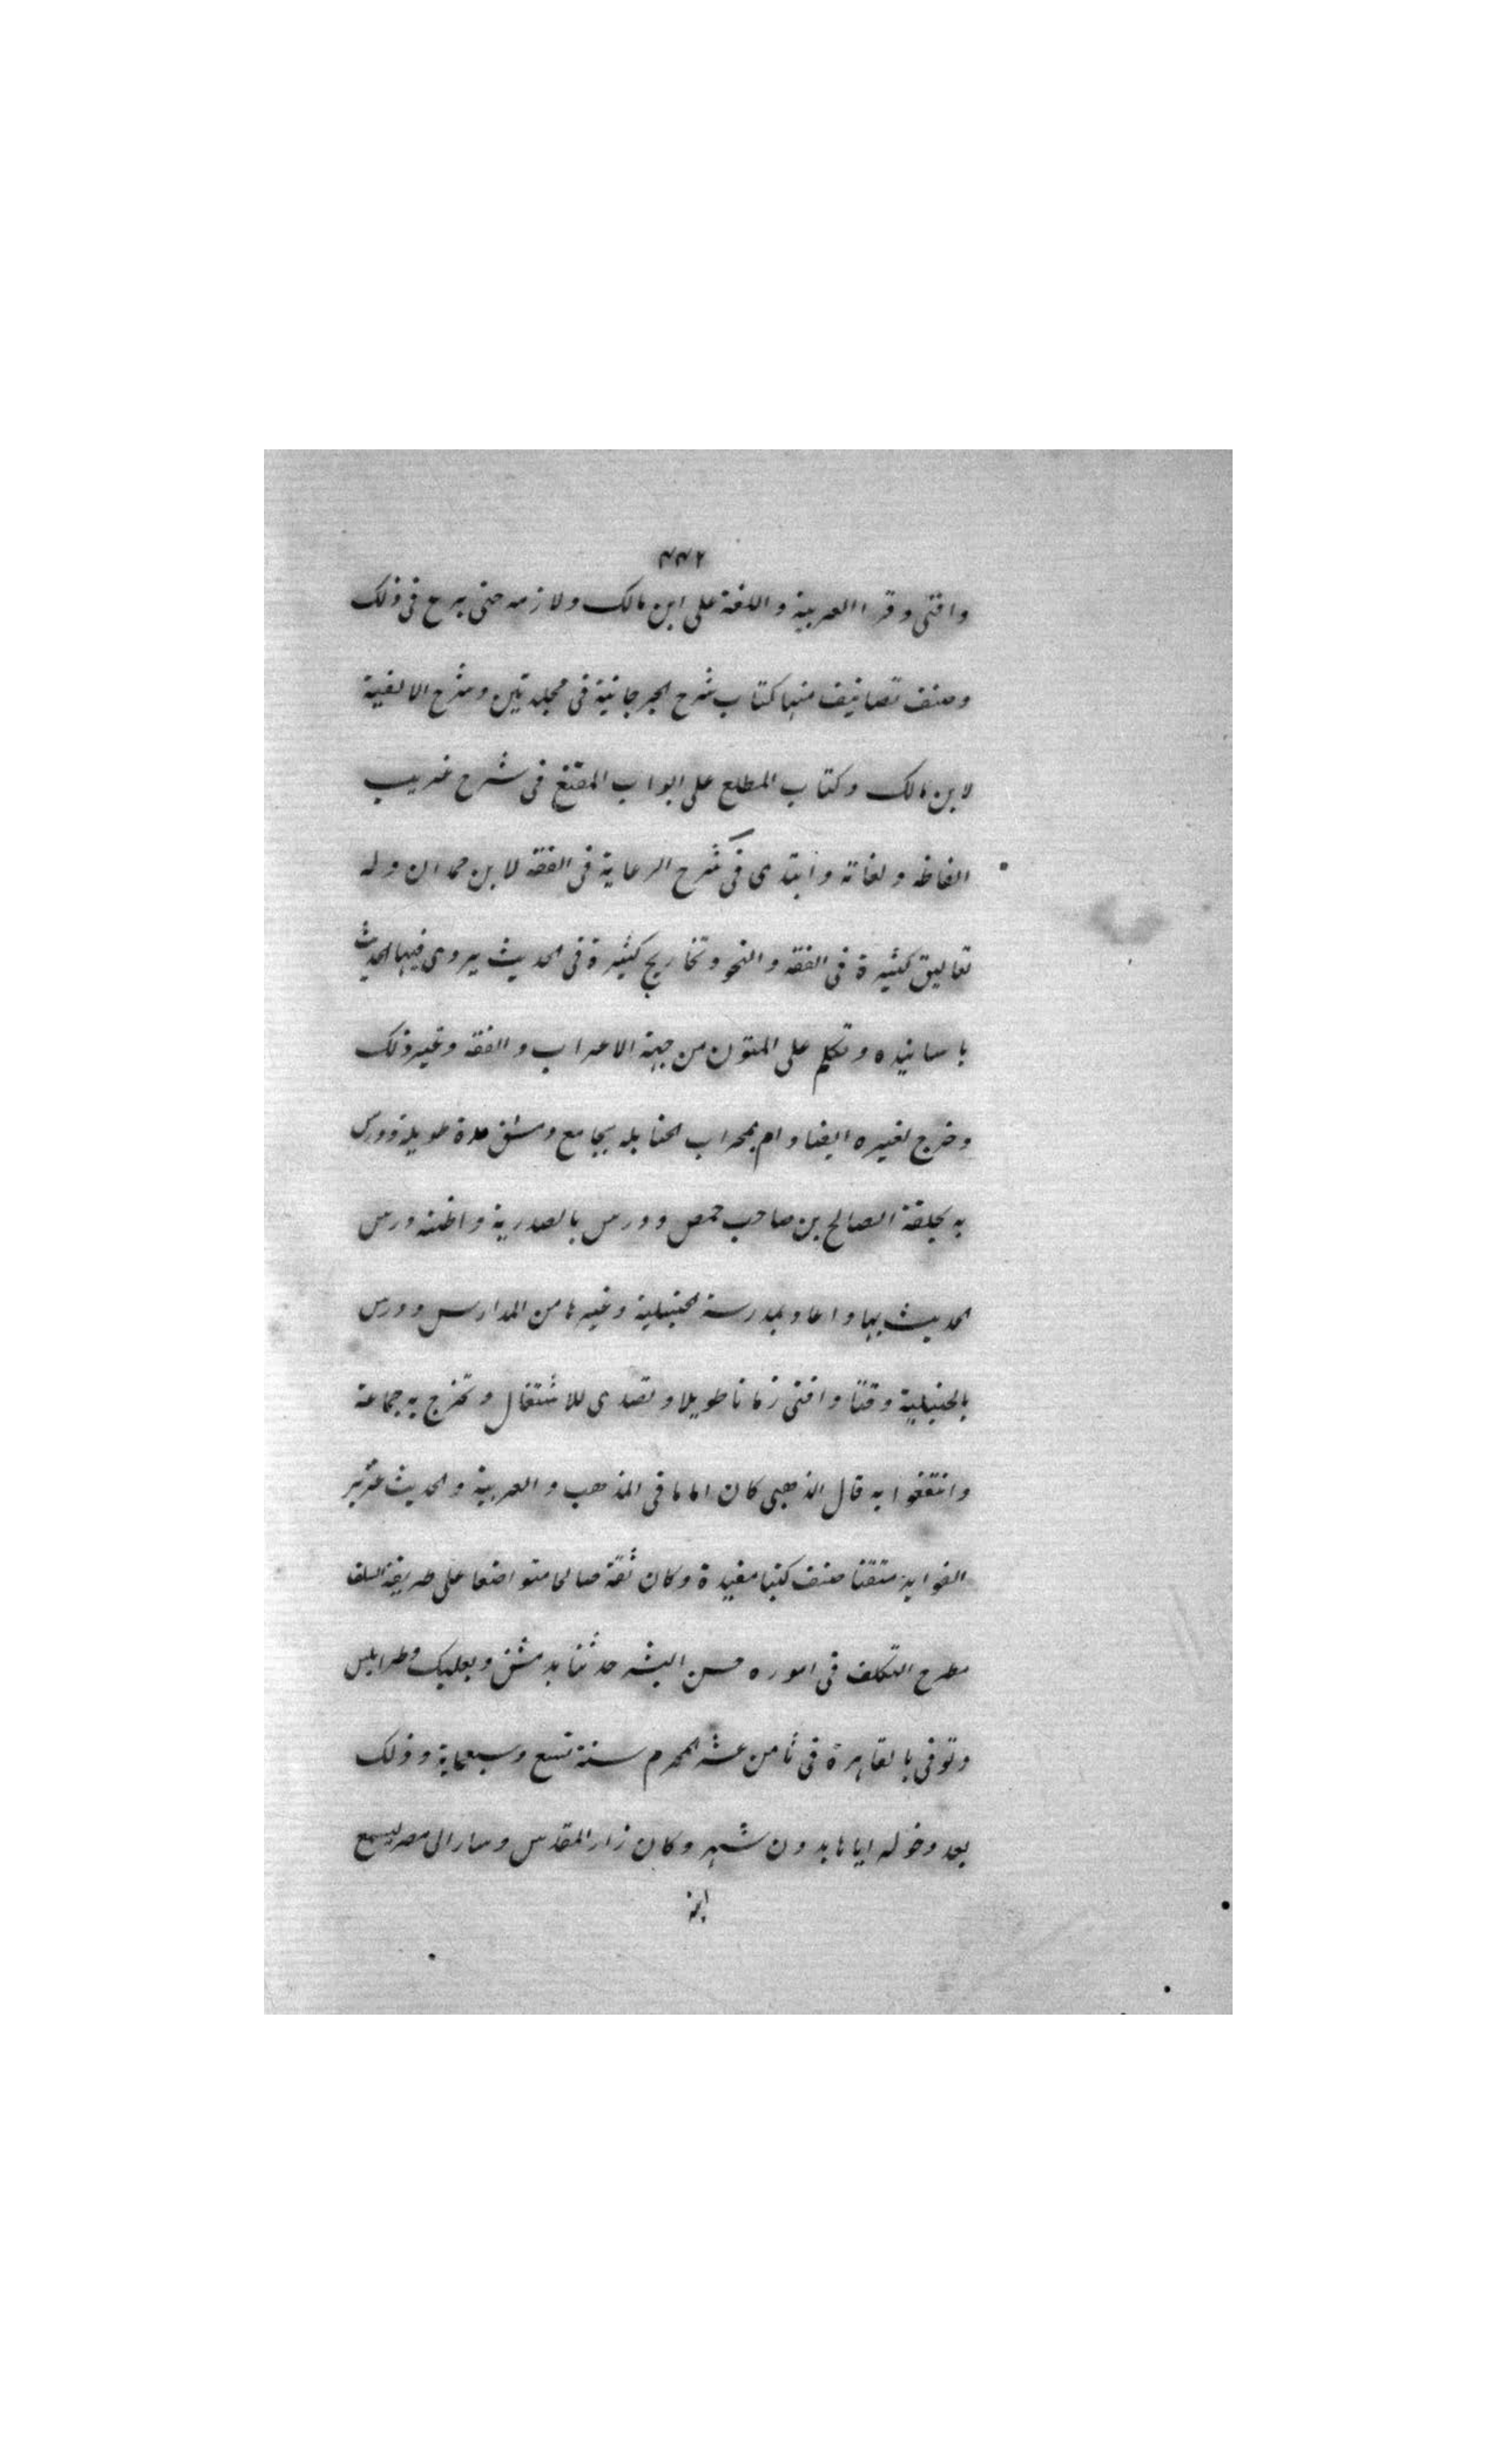 ٤٤٢
وافتى وقرا العربية واللغة على ابن مالك ولازمه حتى برع فى ذلك
وصنف تصانيف منها كتاب شرح الجرجانية فى مجلدتين وشرح الالفية
لابن مالك وكتاب المطلع على ابواب المقنع فى شرح غريب
الفاظه ولغاته وابتدى فى شرح الرعاية فى الفقه لابن حمدان وله
تعاليق كثيرة فى الفقه والنحو وتخاريج كثيرة فى الحديث يروى فيها الحديث
باسانيده وتكلم على المتون من جهة الاعراب والفقه وغير ذلك
وخرج لغيره ايضا وام بمحراب الحنابله بجامع دمشق مدة طويلة ودرس
به بحلقة الصالح بن صاحب حمص ودرس بالصدرية واظنه درس
الحديث بها واعاد بمدرسة الحنبلية وغيرها من المدارس ودرس
بالحنبلية وقتا وافتى زمانا طويلا وتصدى للاشتغال وتخرج به جماعة
وانتفعوا به قال الذهبى كان اماما فى المذهب والعربية والحديث غزير
الفوايد متقنا صنف كتبا مفيدة وكان ثقة صالحا متواضعا على طريقة السلف
مطرح التكلف فى اموره حسن البشر حدثنا بدمشق وبعلبك وطرابلس
وتوفى بالقاهرة فى ثامن عشر المحرم سنة تسع وسبعماية وذلك
بعد دخوله اياها بدون شهر وكان زار المقدس وسار الى مصر ليسمع
ابنه